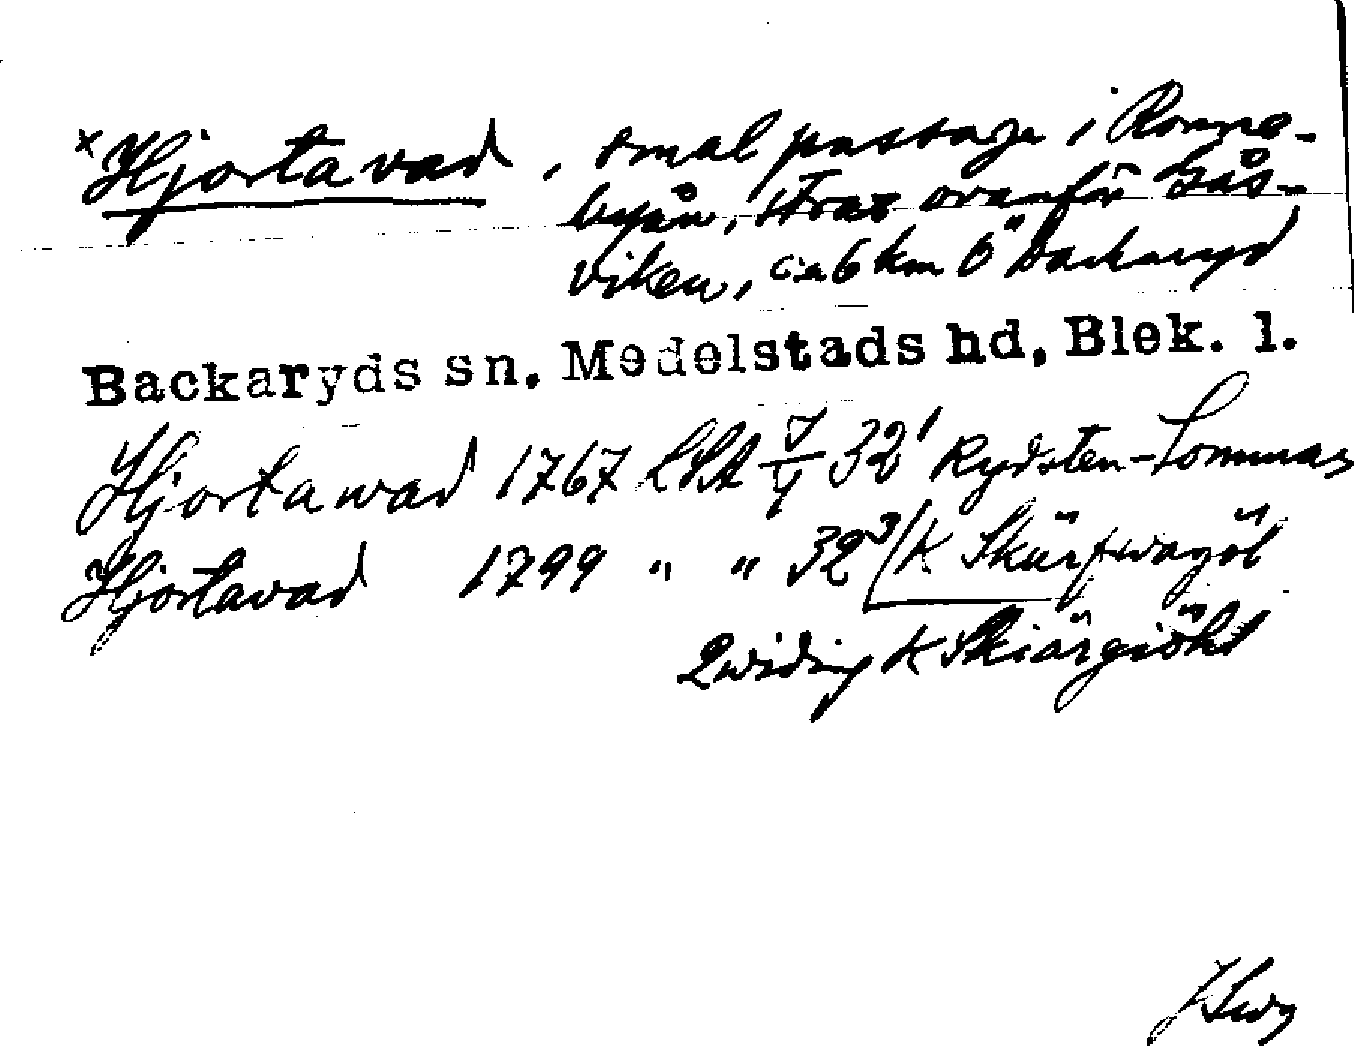 × Hjortavad, smal passage i Ronne-
byån, strax ovanför Gås-
viken, ca 6 km Ö Backaryd
Backaryds sn, Medelstads hd, Blek. l.
Hjortawad 1767 LSA 7/4 32¹ Rydsten-Lommas
Hjortavad 1799 " " 32³ /K Skärfwagöl
K Skiärgiöhl